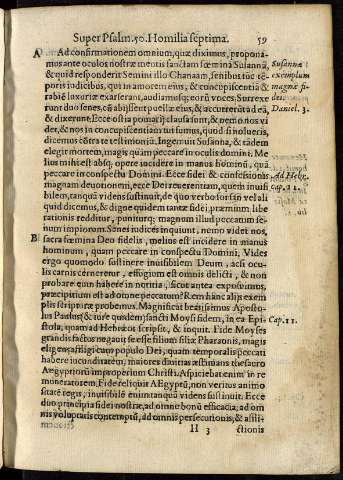 Super Psalm. 50. Homilia septima. 59
A Ad confirmationem omnium, quæ diximus, propona-
mus ante oculos nostræ mentis sanctam fœmina Susanná,
& quid responderit Semini illo Chanaam, senibus túc té-
poris iudicibus, qui in amorem eius, & concupiscentiã &
rabiẽ luxuriæ exarserant, audiamusq; eorũ voces. Surrexe
runt duo senes, cũ abijssent puellæ eius, & accurrerũt ad eã,
& dixerunt. Ecce ostia pomarij clausa sunt, & nemo nos vi
det, & nos in concupiscentiam tui sumus, quod si nolueris,
dicemus cõtra te testimoniũ. Ingemuit Susanna, & tádem
elegit mortem, magis quàm peccare in oculis domini. Me
lius mihi est absq; opere incidere in manus hominũ, quá
peccare in conspectu Domini. Ecce fidei & confessionis
magnam deuotionem, ecce Dei reuerentiam, quem inuisi
bilem, tanquã videns sustinuit, de quo verbo forsan velali
quid dicemus, & digne quidem tantæ fidei, præmium libe
rationis redditur, puniturq; magnum illud peccatum se-
num impiorum. Senes iudices inquiunt, nemo videt nos,
B sacra fœmina Deo fidelis, melius est incidere in manus
hominum, quam peccare in conspectu Domini, Vides
ergo quomodo sustinere inuisibilem Deum, acsi ocu-
lis carnis cerneretur, effugium est omnis delicti, & non
probare eum habere in notitia, sicut antea exposuimus,
præcipitium est ad omne peccatum? Rem hanc alijs exem
plis scripturæ probemus. Magnificat beatissimus Aposto-
lus Paulus (& iure quidem) sancti Moysi fidem, in ea Epi-
stola, quam ad Hebræos scripsit, & inquit. Fide Moyses
grandis factus negauit se esse filium filiæ Pharaonis, magis
eligens affligi cum populo Dei, quam temporalis peccati
habere iucunditatem, maiores diuitias æstimans thesauro
Aegyptiorũ improperium Christi. Aspiciebat enim in re
muneratorem. Fide reliquit Aegyptũ, non veritus animo
sitatẽ regis, inuisibilẽ enim tanquã videns sustinuit. Ecce
duo principia fidei nostræ, ad omne bonũ efficacia; ad om
nis voluptatis contemptũ, ad omnis persecutionis, & affli-
H 3 ctionis
Susanna
exemplum
magnæ fi-
dei.
Daniel. 3.
Ad Hebr.
cap. 11.
Cap. 11.